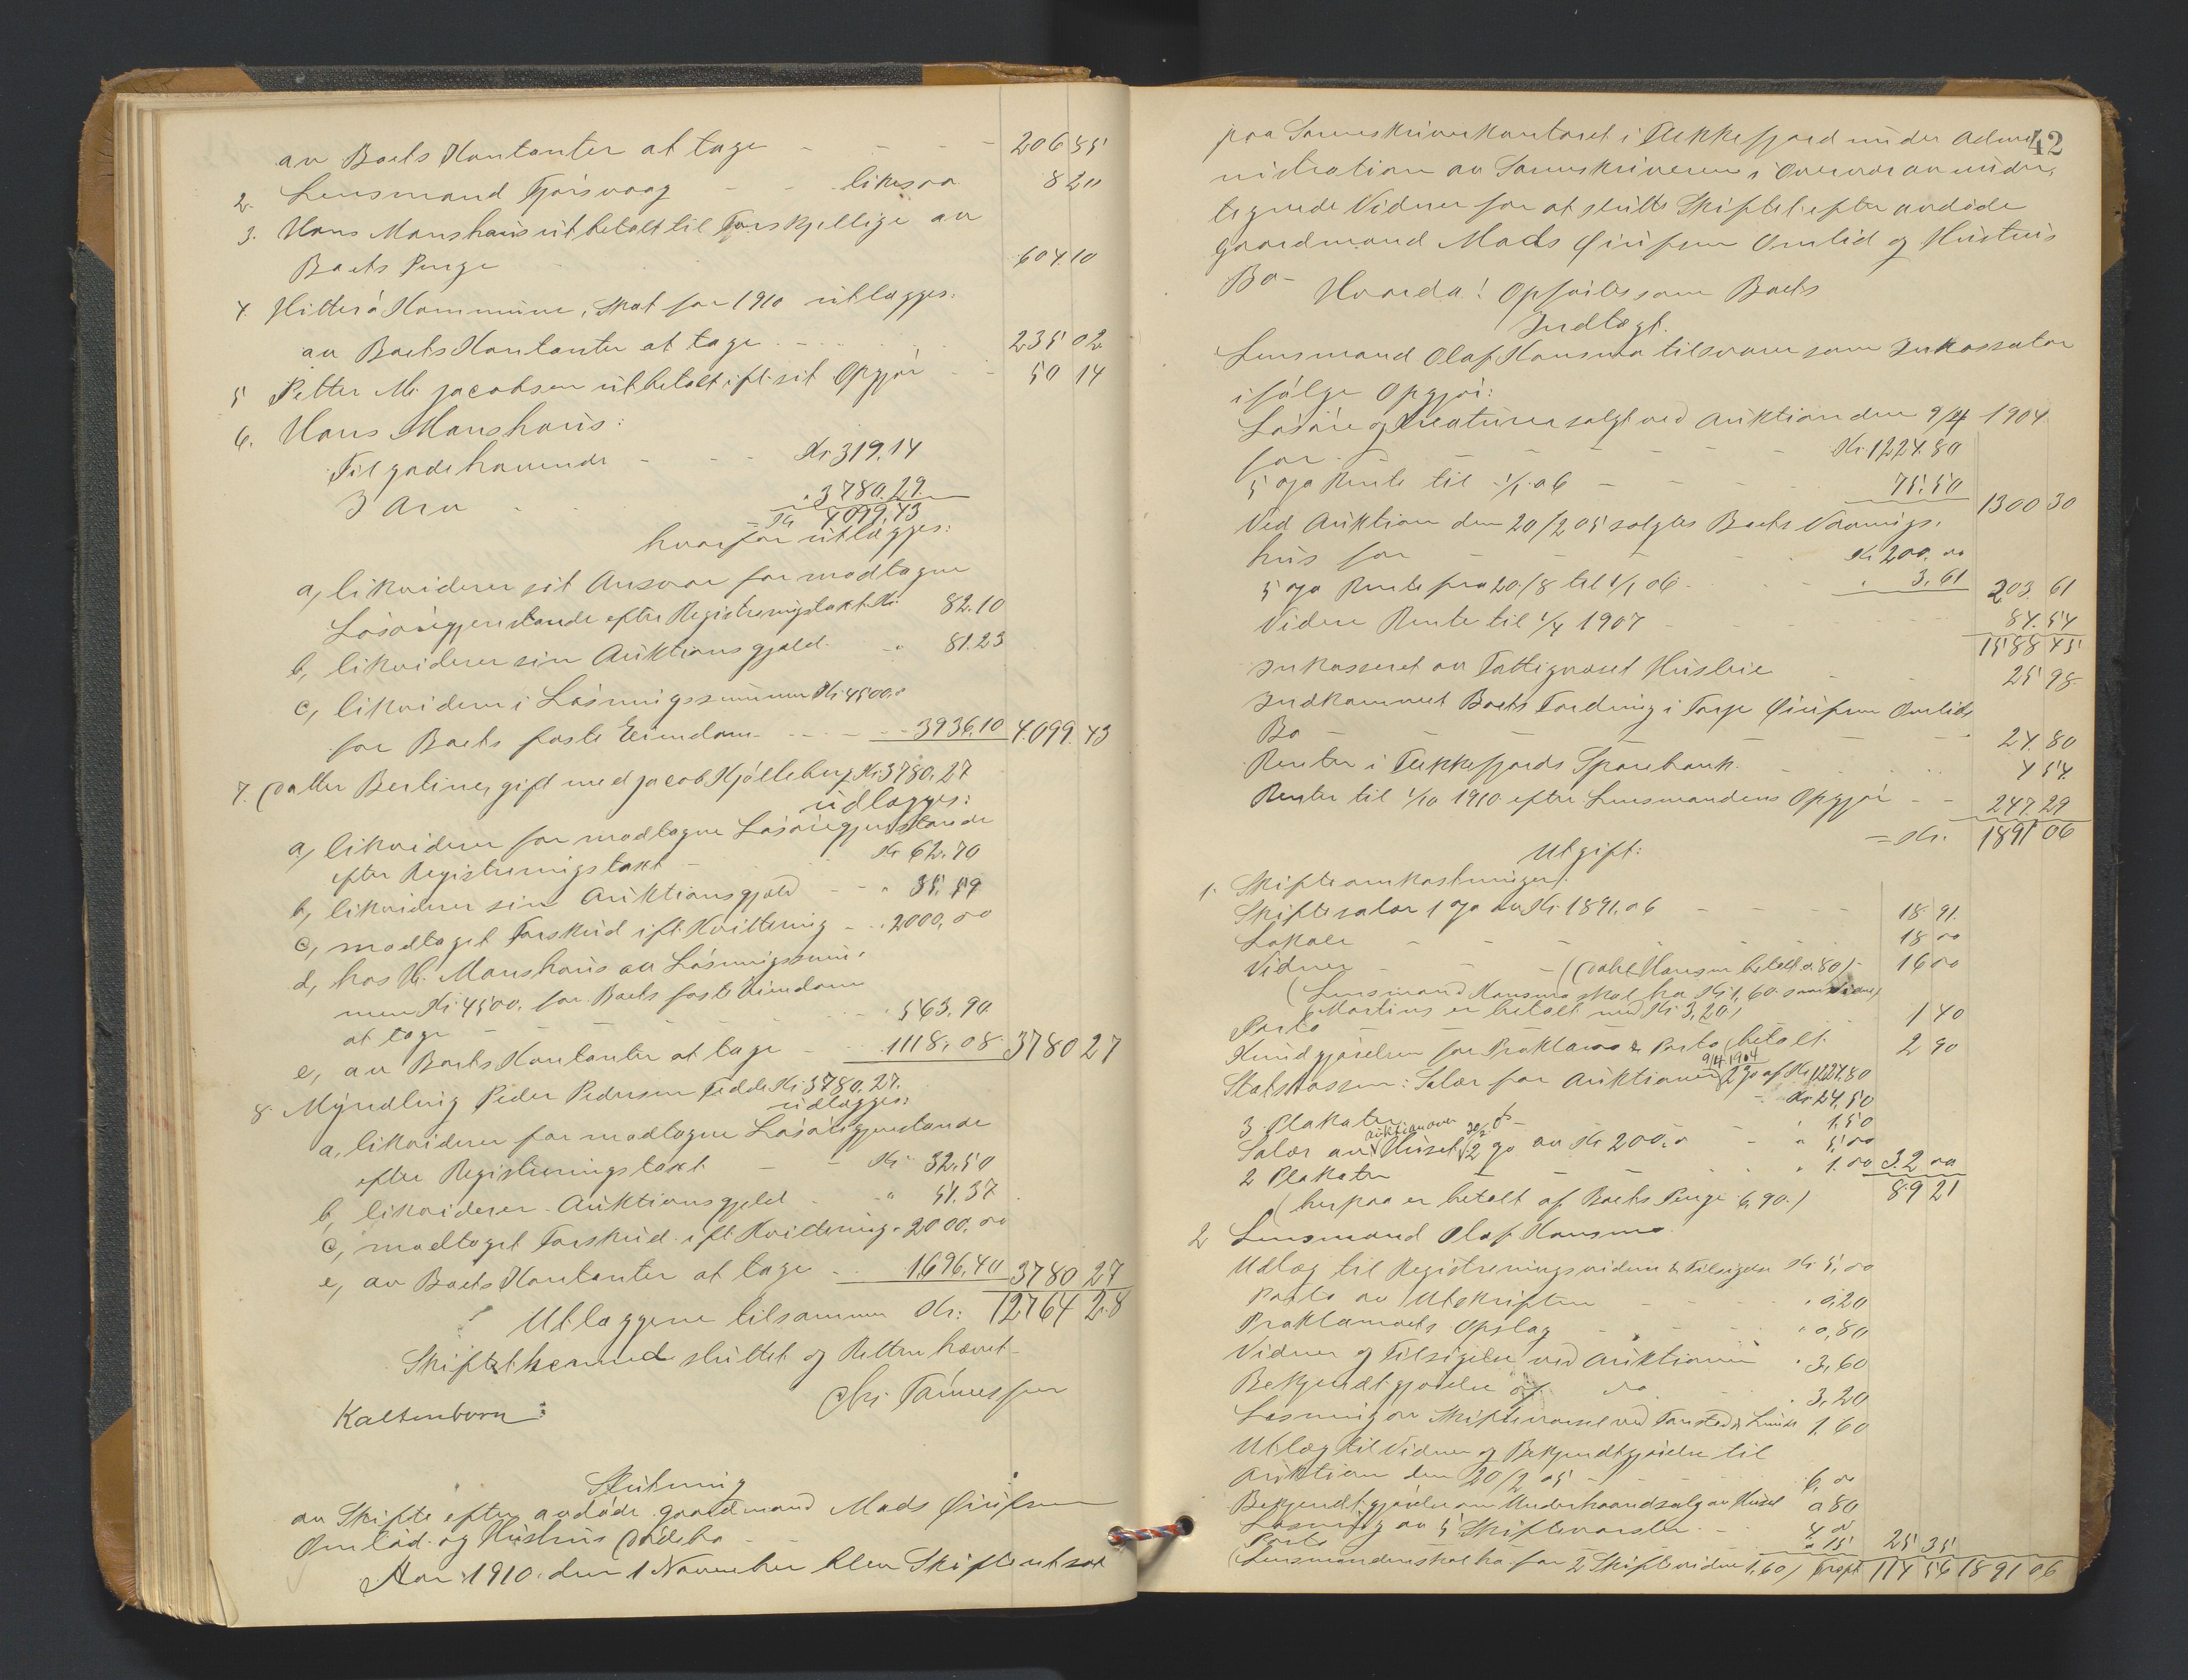 av Boets Kontanter at tage - - - - 206 55
2. Lensmand Tjørsvaag - - likesaa 8 20
3. Hans Manshaus utbetalt til Forskjellige av
Boets Penge - 604.10
4. Hitterø Kommune, Skat for 1910 utlægges:
av Boets Kontanter at tage - - - 235 02
5 Petter M. Jacobsen utbetalt ifl. sit Opgjør - - 50 14
6. Hans Manshaus:
Tilgodehavende - - - Kr 319.14
I Arv - - " 3780.29.
= Kr 4099.43
hvorfor utlægges:
a, likviderer sit Ansvar for modtagne
Løsøregjenstande efter Registreringstakst Kr. 82.10
b, likviderer sin Auktionsgjæld - " 81.23
c, likviderer i Løsningssummen Kr 4500.-
for Boets faste Eiendom - - - 3936.10 4.099.43
7. Datter Berline, gift med Jacob Kjølleberg Kr. 3780.27
udlægges:
a, likviderer for modtagne Løsøregjenstande
efter Registreringstakst - Kr 62.70
b, likviderer sin Auktionsgjæld - - " 35.59
c, modtaget Forskud ifl. Kvittering - " 2000,00
d, hos H. Manshaus av Løsningssum-
men Kr. 4500. for Boets faste Eiendom
at tage - - - - - - 563.90
e, av Boets Kontanter at tage - - 1118,08 3780 27
8. Myndling Peder Pedersen Fedde Kr. 3780.27.
udlægges:
a, likviderer for modtagne Løsøregjenstande
efter Registreringstakst - - Kr 32.50
b, likviderer Auktionsgjeld - " 51.37
c, modtaget Forskud ifl. Kvittering " 2000.00
e, av Boets Kontanter at tage - - 1.696,40 3780 27
Utlæggene tilsammen Kr: 12764 28
Skiftet hermed sluttet og Retten hævet -
Chr. Tønnessen
Kaltenborn:
Slutning
av Skifte efter avdøde gaardmand Mads
Omlid og Hustrus Dødsbo -
Aar 1910 den 1 November blev Skifteret sat
42
paa Sorenskriverkontoret i Flekkefjord under Admi-
nistration av Sorenskriveren i Overvær av under-
tegnede Vidner for at slutte Skiftet efter avdøde
gaardmand Mads Omlid og Hustrus
Bo - Hvorda: Opføites som Boets
Indtægt.
Lensmand Olaf Hansma tilsvarer som Inkassator
ifølge Opgjør:
Løsøre og Kreaturer solgt ved Auktion den 9/4 1904
for - - - - - - Kr. 1224.80
5 % Rente til 1/1 06 - - - - 75.50 1300 30
Ved Auktion den 20/2 05 solgtes Boets Vaanings-
hus for - - - - - Kr 200.00
5 % Rente fra 20/8 til 1/1 06 - - " 3,61 203.61
Videre Rente til 1/4 1907 - - - 84.54
1588 45
Inkasseret av Fattigvæset Husleie - 25 98
Indkommet Boets Fordring i Omlids
Bo - - - - - - - 24.80
Renter i Flekkefjords Sparebank - - - 4 54
Renter til 1/10 1910 efter Lensmandens Opgjør - - 247.29
= Kr. 1891 06
Utgift:
1. Skifteomkostninger:
Skiftesalær 1 % av Kr. 1891,06 - - - - 18 91.
Lokale - - - - - - 18 00
Vidner - - - (Hansen betalt 0.80) - 16 00
(Lensmand Hansma skal ha Kr 1,60 som Vidne,
Martius er betalt med Kr 3,20)
Porto - - - - - 1 40
Kundgjørelsen for Proklama & Porto, betalt. 2 90
Statskassen: Salær for Auktionen 9/4 1904 2 % af Kr 1224.80
- Kr 24,50
3 Plakater - " 1,50
Salær av Auktion over Huset 20/2 05 2 % av Kr 200.0 - " 5,00
2 Plakater - - - " 1.00 32 00
(herpaa er betalt af Boets Penge 6,90.) 89 21
2 Lensmand Olaf Hansma
Utlæg til Registreringsvidner & Tilsigelse Kr 5,00
Porto av Utskriften - - - " 0,20
Proklamaets Opslag - - - " 0,80
Vidner og Tilsigelse ved Auktionen " 3,60
Bekjendtgjørelse af do - " 3,20
Læsning av Skiftevarsel ved 1.60
Utlæg til Vidner og Bekjendtgjørelse til
Auktion den 20/2 05 - - - 6,00
Bekjendtgjørelse om Underhaandssalg av Huset 0 80
Læsning av 5 Skiftevarsler - - 4 00
Porto 0 15 25 35
(Lensmanden skal ha for 2 Skiftevidner 1,60) Transpt 114 56 1891 06